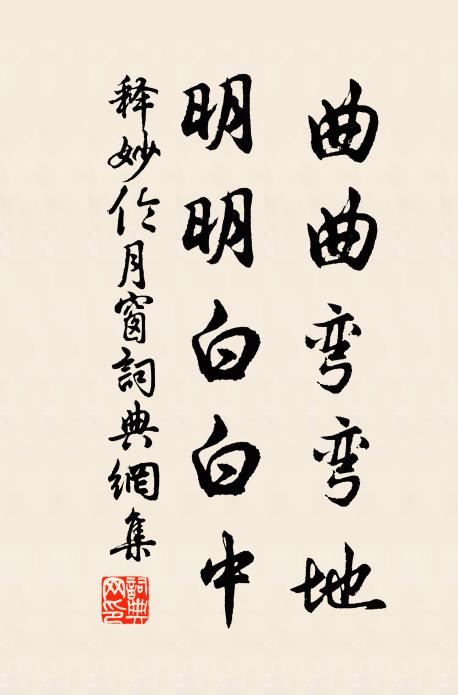 曲曲弯弯地
明明白白中
释妙伦月窗詞典網集
詞典网印